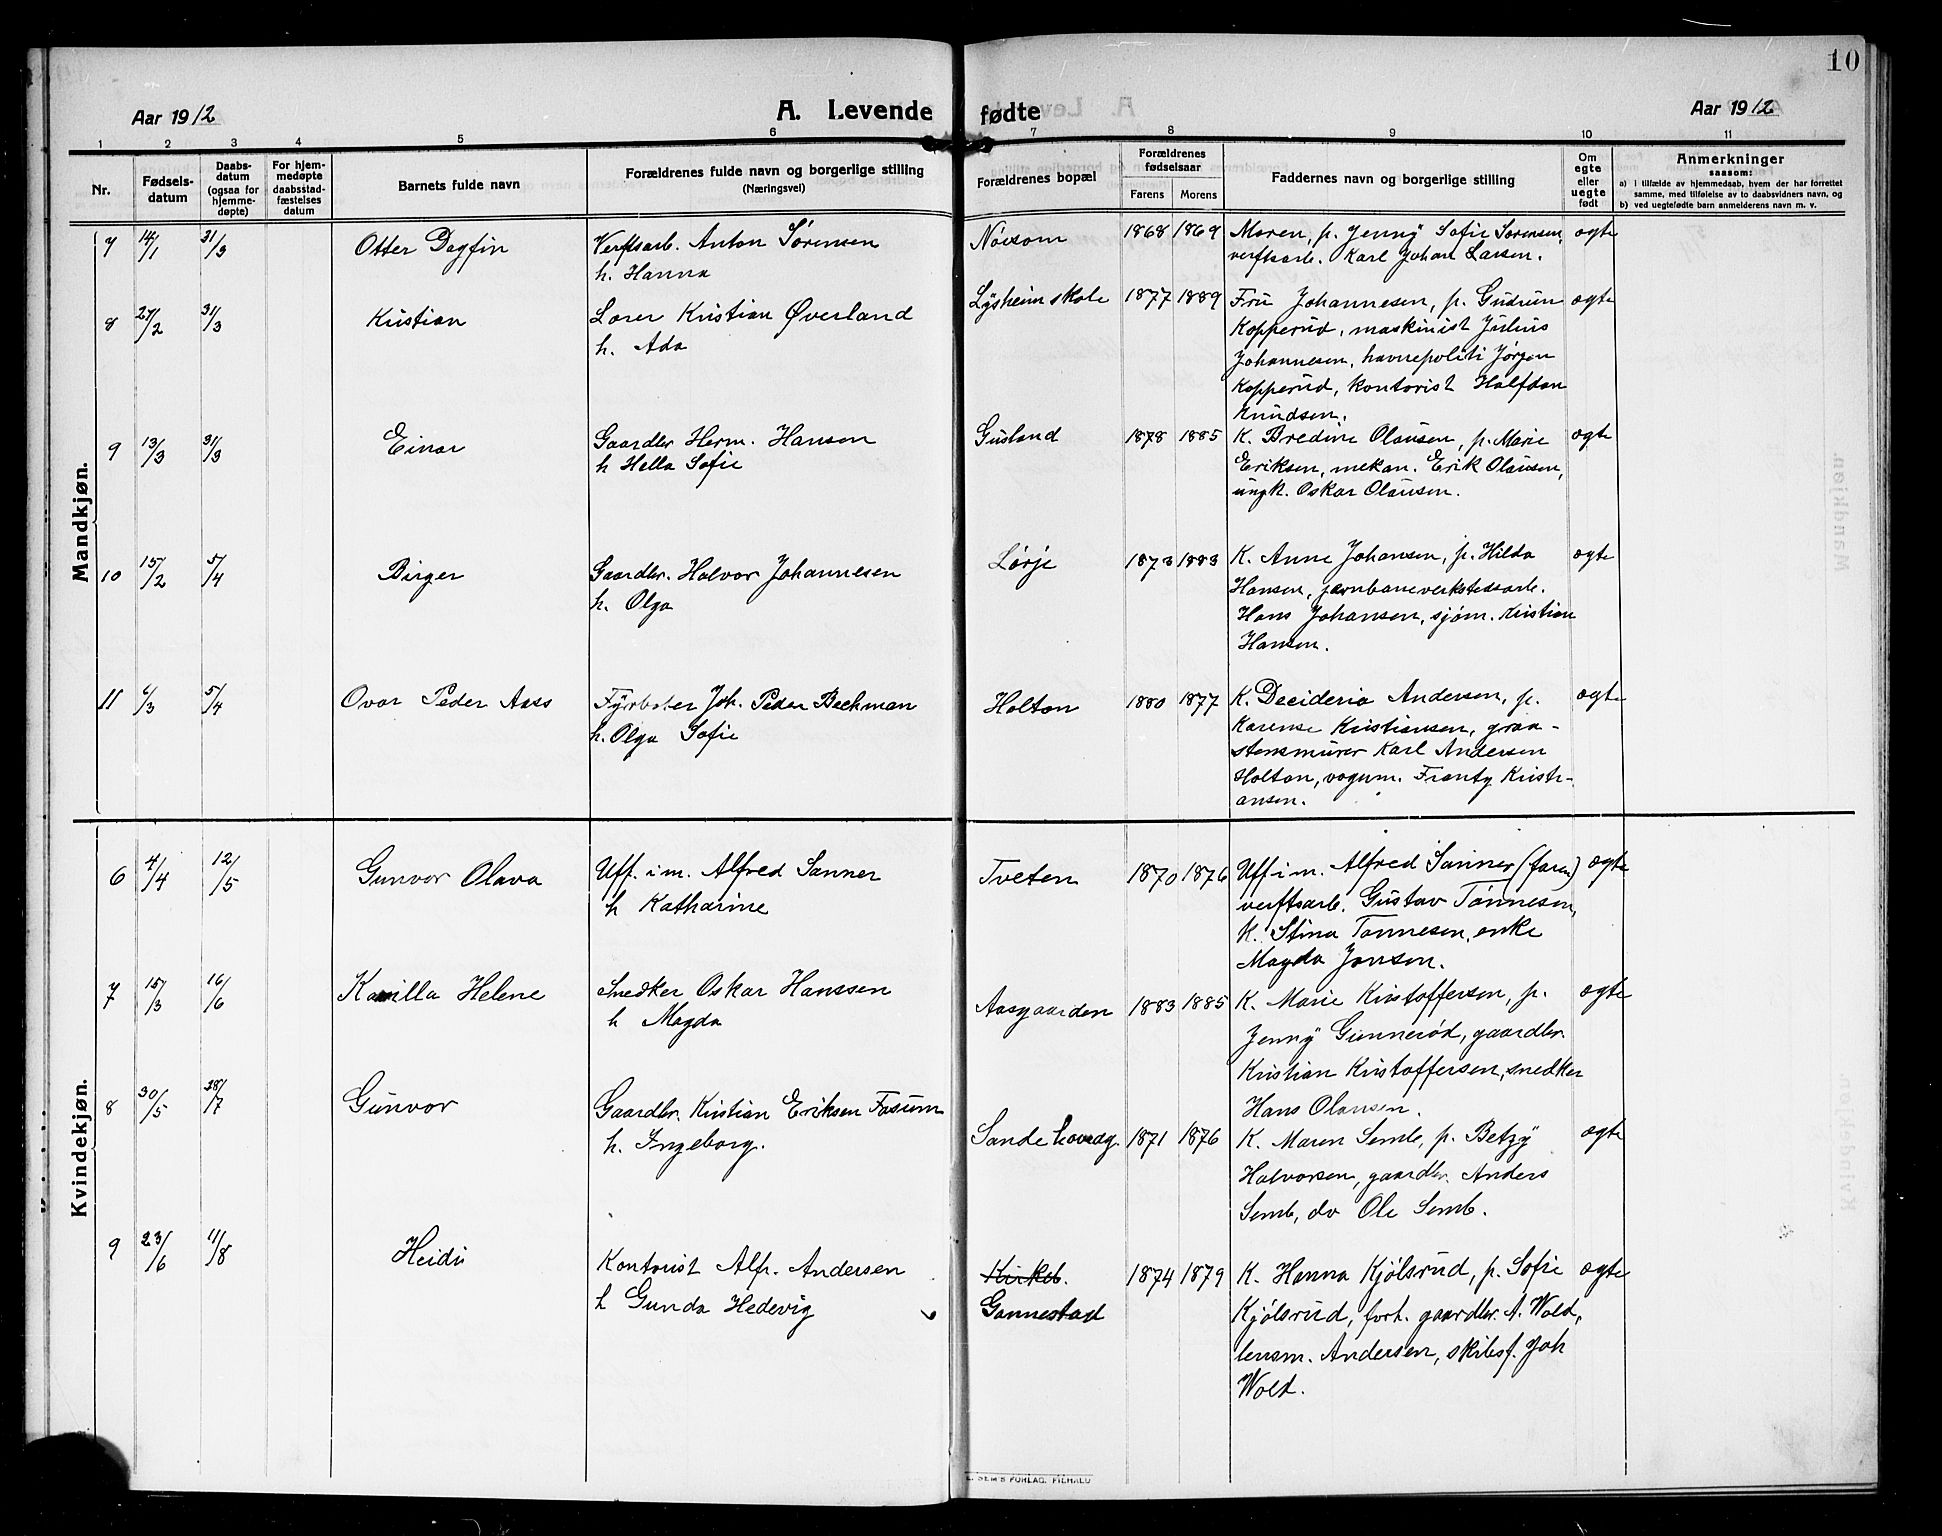 10
Aar 1912
A. Levende fødte
Aar 1912
1 2 3 4 5 6 7 8 9 10 11
Nr.
Fødsels-
datum
Daabs-
datum
(ogsaa for
hjemme-
døpte)
For hjem-
medøpte
daabsstad-
fæstelses
datum
Barnets fulde navn
Forældrenes fulde navn og borgerlige stilling
(Næringsvei)
Forældrenes bopæl
Forældrenes
fødselsaar
Farens Morens
Faddernes navn og borgerlige stilling
Om
egte
eller
uegte
født
Anmerkninger
saasom:
a) i tilfælde av hjemmedaab, hvem der har forrettet
samme, med tilføielse av to daabsvidners navn, og
b) ved uegtefødte barn anmelderens navn m. v.
Mandkjøn.
7 14/1 31/3 Otter Dagfin
Verftsarb. Anton Sørensen
h. Hanna
Nøisom 1868 1869
Maren, p. Jenny Sofie Sørensen,
verftsarb. Karl Johan Larsen.
egte
8 27/2 31/3 Kristian
Lærer Kristian Øverland
h. Ada
Lysheim skole 1877 1889
Fru Johannesen, p. Gudrun
Kopperud, maskinist Julius
Johannesen, havnepoliti Jørgen
Kopperud, kontorist Halfdan
Knudsen.
egte
9 13/3 31/3 Einar
Gaardbr Herm. Hansen
h Hella Sofie
Gusland 1878 1885
K. Bredine Olausen, p. Marie
Eriksen, mekan. Erik Olausen,
ungk. Oskar Olausen.
egte
10 15/2 5/4 Birger
Gaardbr. Halvor Johannesen
h. Olga
Lørje 1873 1883
K. Anne Johansen, p. Hilda
Hansen, jernbaneverkstedsarb.
Hans Johansen, sjøm. Kristian
Hansen.
egte
11 6/3 5/4 Ovar Peder Aass
Fyrbøter Joh. Peder Bechman
h. Olga Sofie
Holtan 1880 1877
K. Decideria Andersen, p.
Karense Kristiansen, graa-
stensmurer Karl Andersen
Holtan, vogum. Frantz Kristi-
ansen.
egte
Kvindekjøn.
6 4/4 12/5 Gunvor Olava
Uff. i m. Alfred Sanner
h Katharine
Tveten 1870 1876
Uff. i m. Alfred Sanner (faren)
verftsarb. Gustav Tønnesen,
K. Stina Tønnesen, enke
Magda Jensen.
egte
7 15/3 16/6 Kamilla Helene
Snedker Oskar Hanssen
h Magda
Aasgaarden 1883 1885
K. Marie Kristoffersen, p.
Jenny Gunnerød, gaardbr.
Kristian Kristoffersen, snedker
Hans Olausen.
egte
8 30/5 28/7 Gunvor
Gaardbr. Kristian Eriksen Fosum
h. Ingeborg.
Sande hovedg. 1871 1876
K. Maren Semb, p. Betzy
Halvorsen, gaardbr. Anders
Semb, do Ole Semb.
egte
9 23/6 11/8 Heidi
Kontorist Alfr. Andersen
h Gunda Hedevig
Kirkeb.
Gannestad 1874 1879
K. Hanna Kjølsrud, p. Sofie
Kjølsrud, forh. gaardbr. A. Wold,
lensm. Andersen, skibsf. Joh
Wold.
egte
E. SEM'S FORLAG, F.HALD